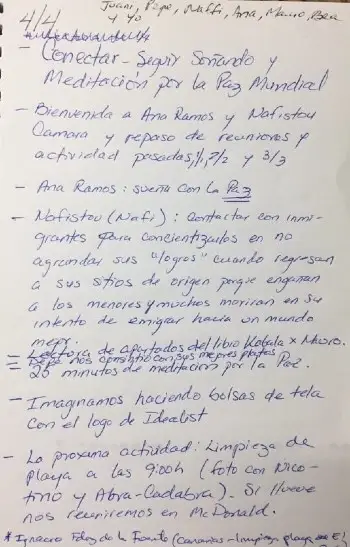 4/4 Juani, Pepe, Naffi, Ana, Mauro, Bea
y yo
- Conectar - Seguir Soñando y
Meditación por la Paz Mundial
- Bienvenida a Ana Ramos y Nafistou
Camara y repaso de reuniones y
actividad pasadas, 1/1, 7/2 y 3/3
- Ana Ramos: sueña con la Paz
- Nafistou (Nafi): contactar con inmi-
grantes para concientizarlos en no
agrandar sus "logros" cuando regresan
a sus sitios de origen porque engañan
a los menores y muchos morirán en su
intento de emigrar hacia un mundo
mejor.
= Lectura de apartados del libro Kabala x Mauro.
= nos con sus mejores platos
= 25 minutos de meditación por la Paz.
- Imaginamos haciendo bolsas de tela
con el logo de Idealist
- La proxima actividad: Limpieza de
playa a las 9:00h (foto con Nico-
tino y Abra-Cadabra). Si llueve
nos reuniremos en McDonald.
* Ignacio de la Fuente (Canarias - limpian playa